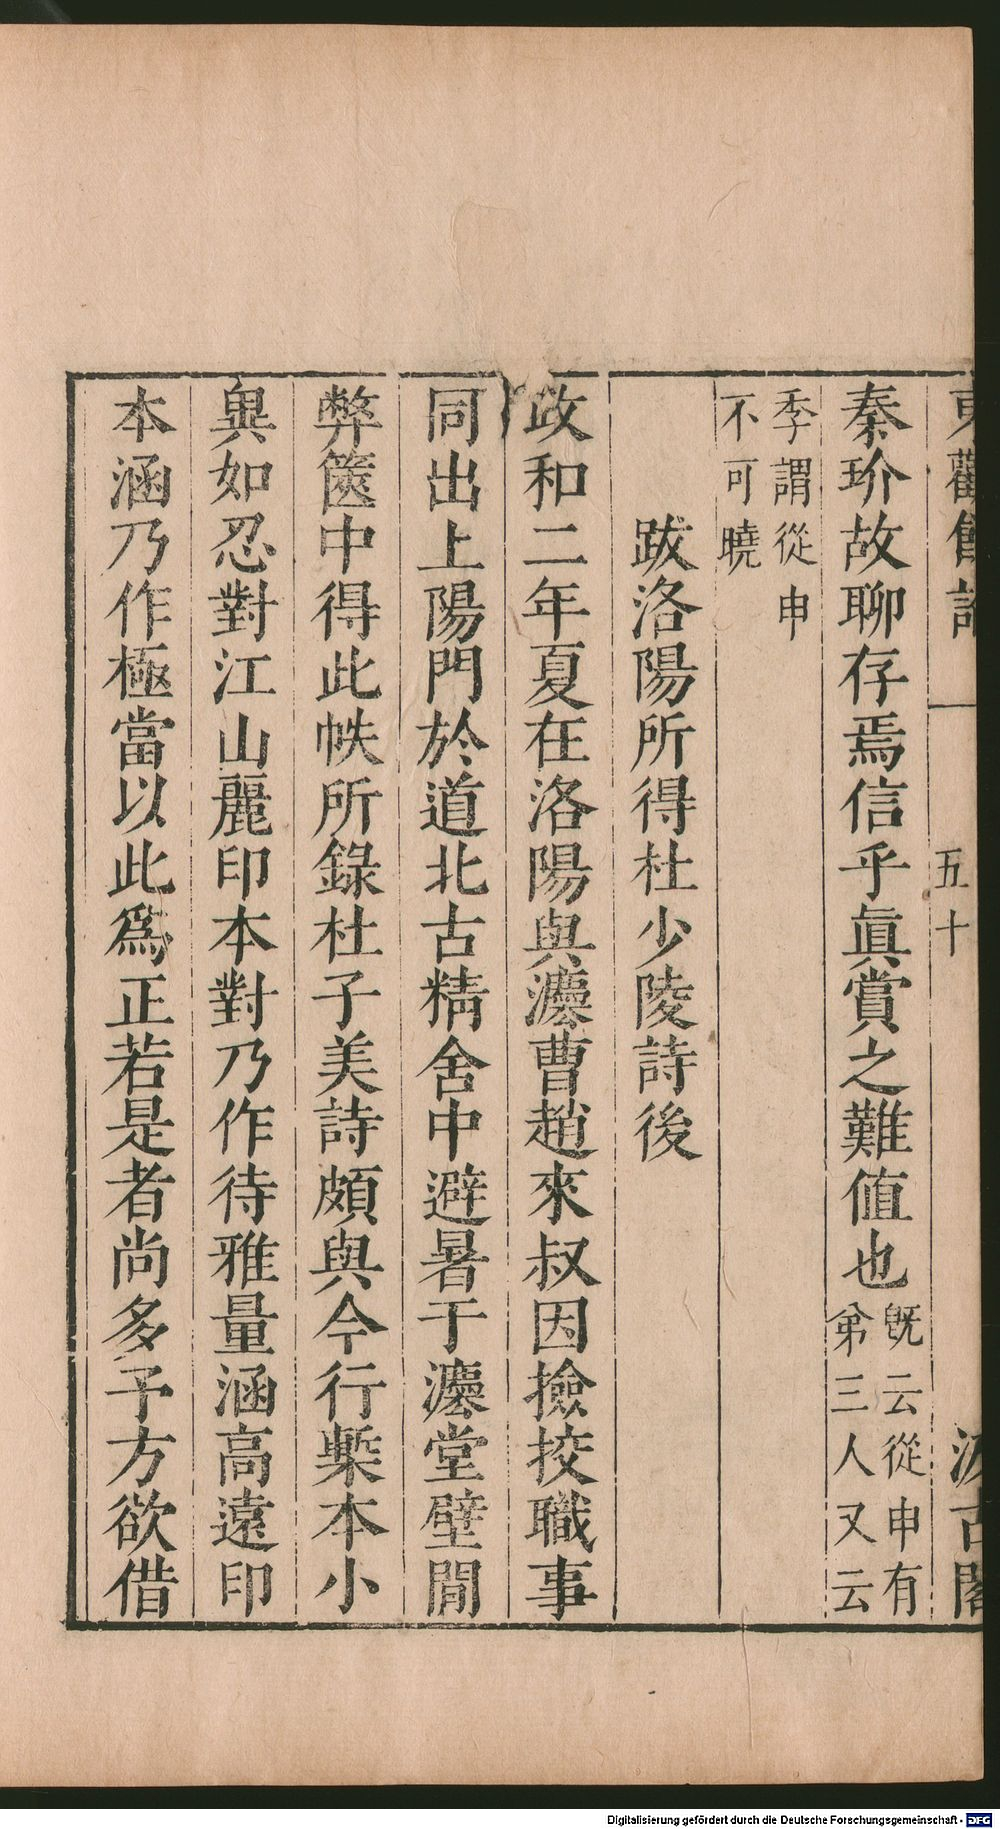 東觀餘論 五十 汲古閣
秦玠故聊存焉信乎眞賞之難值也旣云從申有
弟三人又云
季謂從申
不可曉
跋洛陽所得杜少陵詩後
政和二年夏在洛陽與灋曹趙來叔因撿挍職事
同出上陽門於道北古精舍中避暑于灋堂壁間
弊篋中得此帙所錄杜子美詩頗與今行槧本小
異如忍對江山麗印本對乃作待雅量涵高遠印
本涵乃作極當以此爲正若是者尚多予方欲借
Digitalisierung gefördert durch die Deutsche Forschungsgemeinschaft - DFG